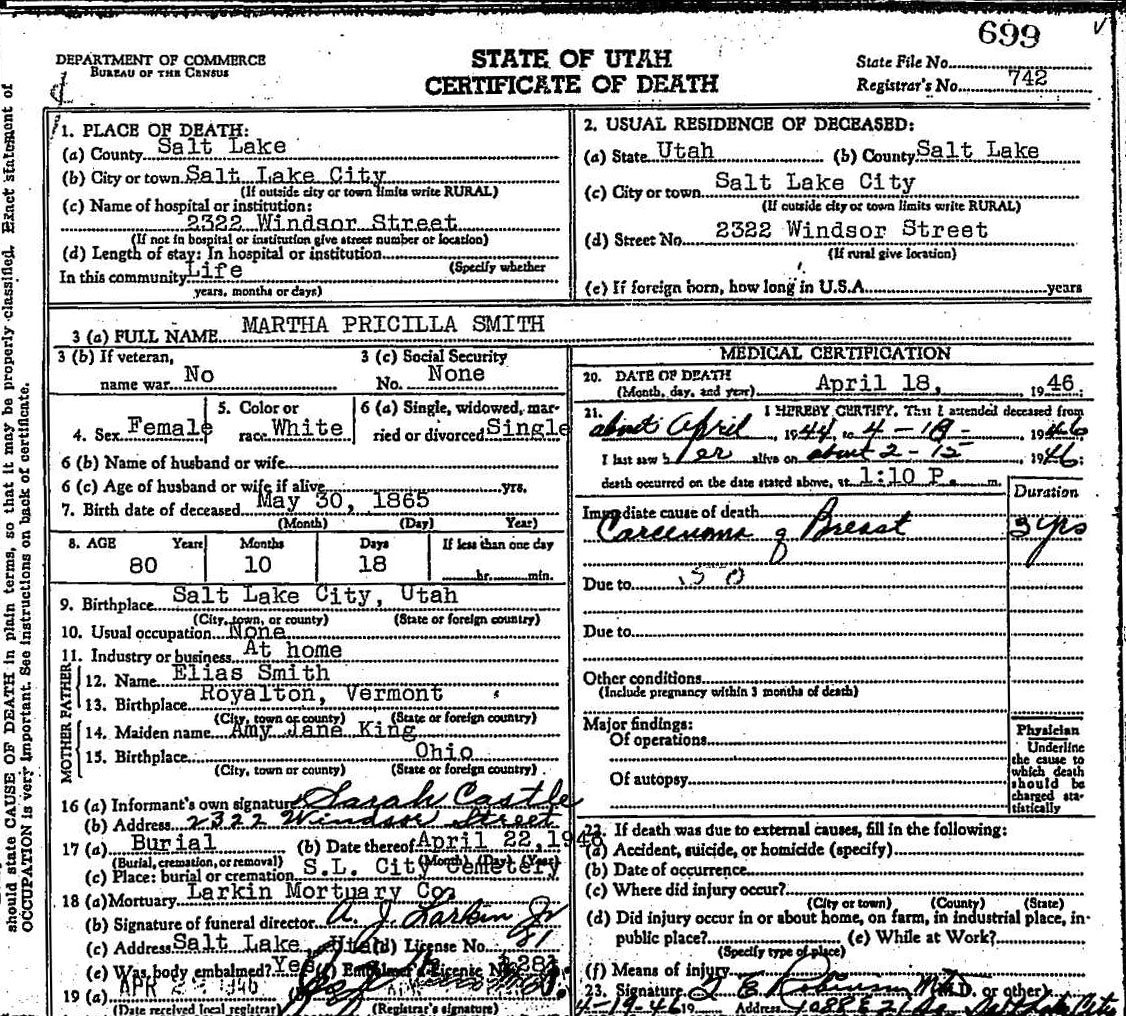 699
DEPARTMENT OF COMMERCE
BUREAU OF THE CENSUS
STATE OF UTAH
CERTIFICATE OF DEATH
State File No.
Registrar's No. 742
should state CAUSE OF DEATH in plain terms, so that it may be properly classified. Exact statement of
OCCUPATION is very important. See instructions on back of certificate.
1. PLACE OF DEATH:
(a) County Salt Lake
(b) City or town Salt Lake City
(If outside city or town limits write RURAL)
(c) Name of hospital or institution:
2322 Windsor Street
(If not in hospital or institution give street number or location)
(d) Length of stay: In hospital or institution
(Specify whether
In this community Life
years, months or days)
2. USUAL RESIDENCE OF DECEASED:
(a) State Utah (b) County Salt Lake
(c) City or town Salt Lake City
(If outside city or town limits write RURAL)
(d) Street No. 2322 Windsor Street
(If rural give location)
(e) If foreign born, how long in U.S.A. years
3 (a) FULL NAME MARTHA PRICILLA SMITH
3 (b) If veteran,
name war No
3 (c) Social Security
No. None
4. Sex Female
5. Color or
race White
6 (a) Single, widowed, mar-
ried or divorced Single
6 (b) Name of husband or wife
6 (c) Age of husband or wife if alive yrs.
7. Birth date of deceased May 30, 1865
(Month) (Day) Year)
8. AGE Years Months Days If less than one day
80 10 18 hr. min.
9. Birthplace Salt Lake City, Utah
(City, town, or county) (State or foreign country)
10. Usual occupation None
11. Industry or business At home
FATHER
12. Name Elias Smith
13. Birthplace Royalton, Vermont
(City, town or county) (State or foreign country)
MOTHER
14. Maiden name Amy Jane King
15. Birthplace Ohio
(City, town or county) (State or foreign country)
16 (a) Informant's own signature Sarah Castle
(b) Address 2322 Windsor Street
17 (a) Burial (b) Date thereof April 22, 1946
(Burial, cremation, or removal) (Month) (Day) (Year)
(c) Place: burial or cremation S.L. City Cemetery
18 (a) Mortuary Larkin Mortuary Co.
(b) Signature of funeral director A. J. Larkin Jr
(c) Address Salt Lake, Utah (d) License No. 81
(e) Was body embalmed? Yes (f) Embalmer's License No.
19 (a) APR 1946
(Date received local registrar) (Registrar's signature)
MEDICAL CERTIFICATION
20. DATE OF DEATH
(Month, day, and year) April 18, 1946;
21. I HEREBY CERTIFY, That I attended deceased from
about April, 1944, to 4-18- 1946
I last saw her alive on about 2-15 1946;
death occurred on the date stated above, at 1:10 P. m.
Duration
Immediate cause of death
Carcenoma of Breast 3 yrs
Due to
Due to
Other conditions
(Include pregnancy within 3 months of death)
Major findings:
Of operations
Of autopsy
Physician
Underline
the cause to
which death
should be
charged sta-
tistically
22. If death was due to external causes, fill in the following:
(a) Accident, suicide, or homicide (specify)
(b) Date of occurrence
(c) Where did injury occur?
(City or town) (County) (State)
(d) Did injury occur in or about home, on farm, in industrial place, in-
public place? (e) While at Work?
(Specify type of place)
(f) Means of injury
23. Signature Robinson M.D. (M.D. or other)
4-19-46 19 Address Salt Lake City